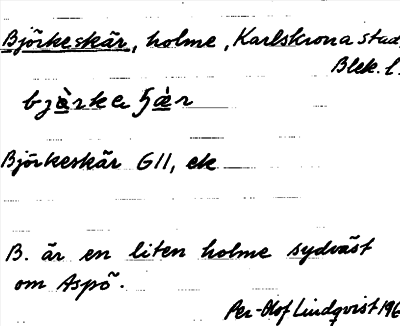 Björkeskär, holme, Karlskrona stad
Blek. l.
bjä̀rkeʃä̀r
Björkeskär G11, ek
B. är en liten holme sydväst
om Aspö.
Per-Olof Lindqvist 196